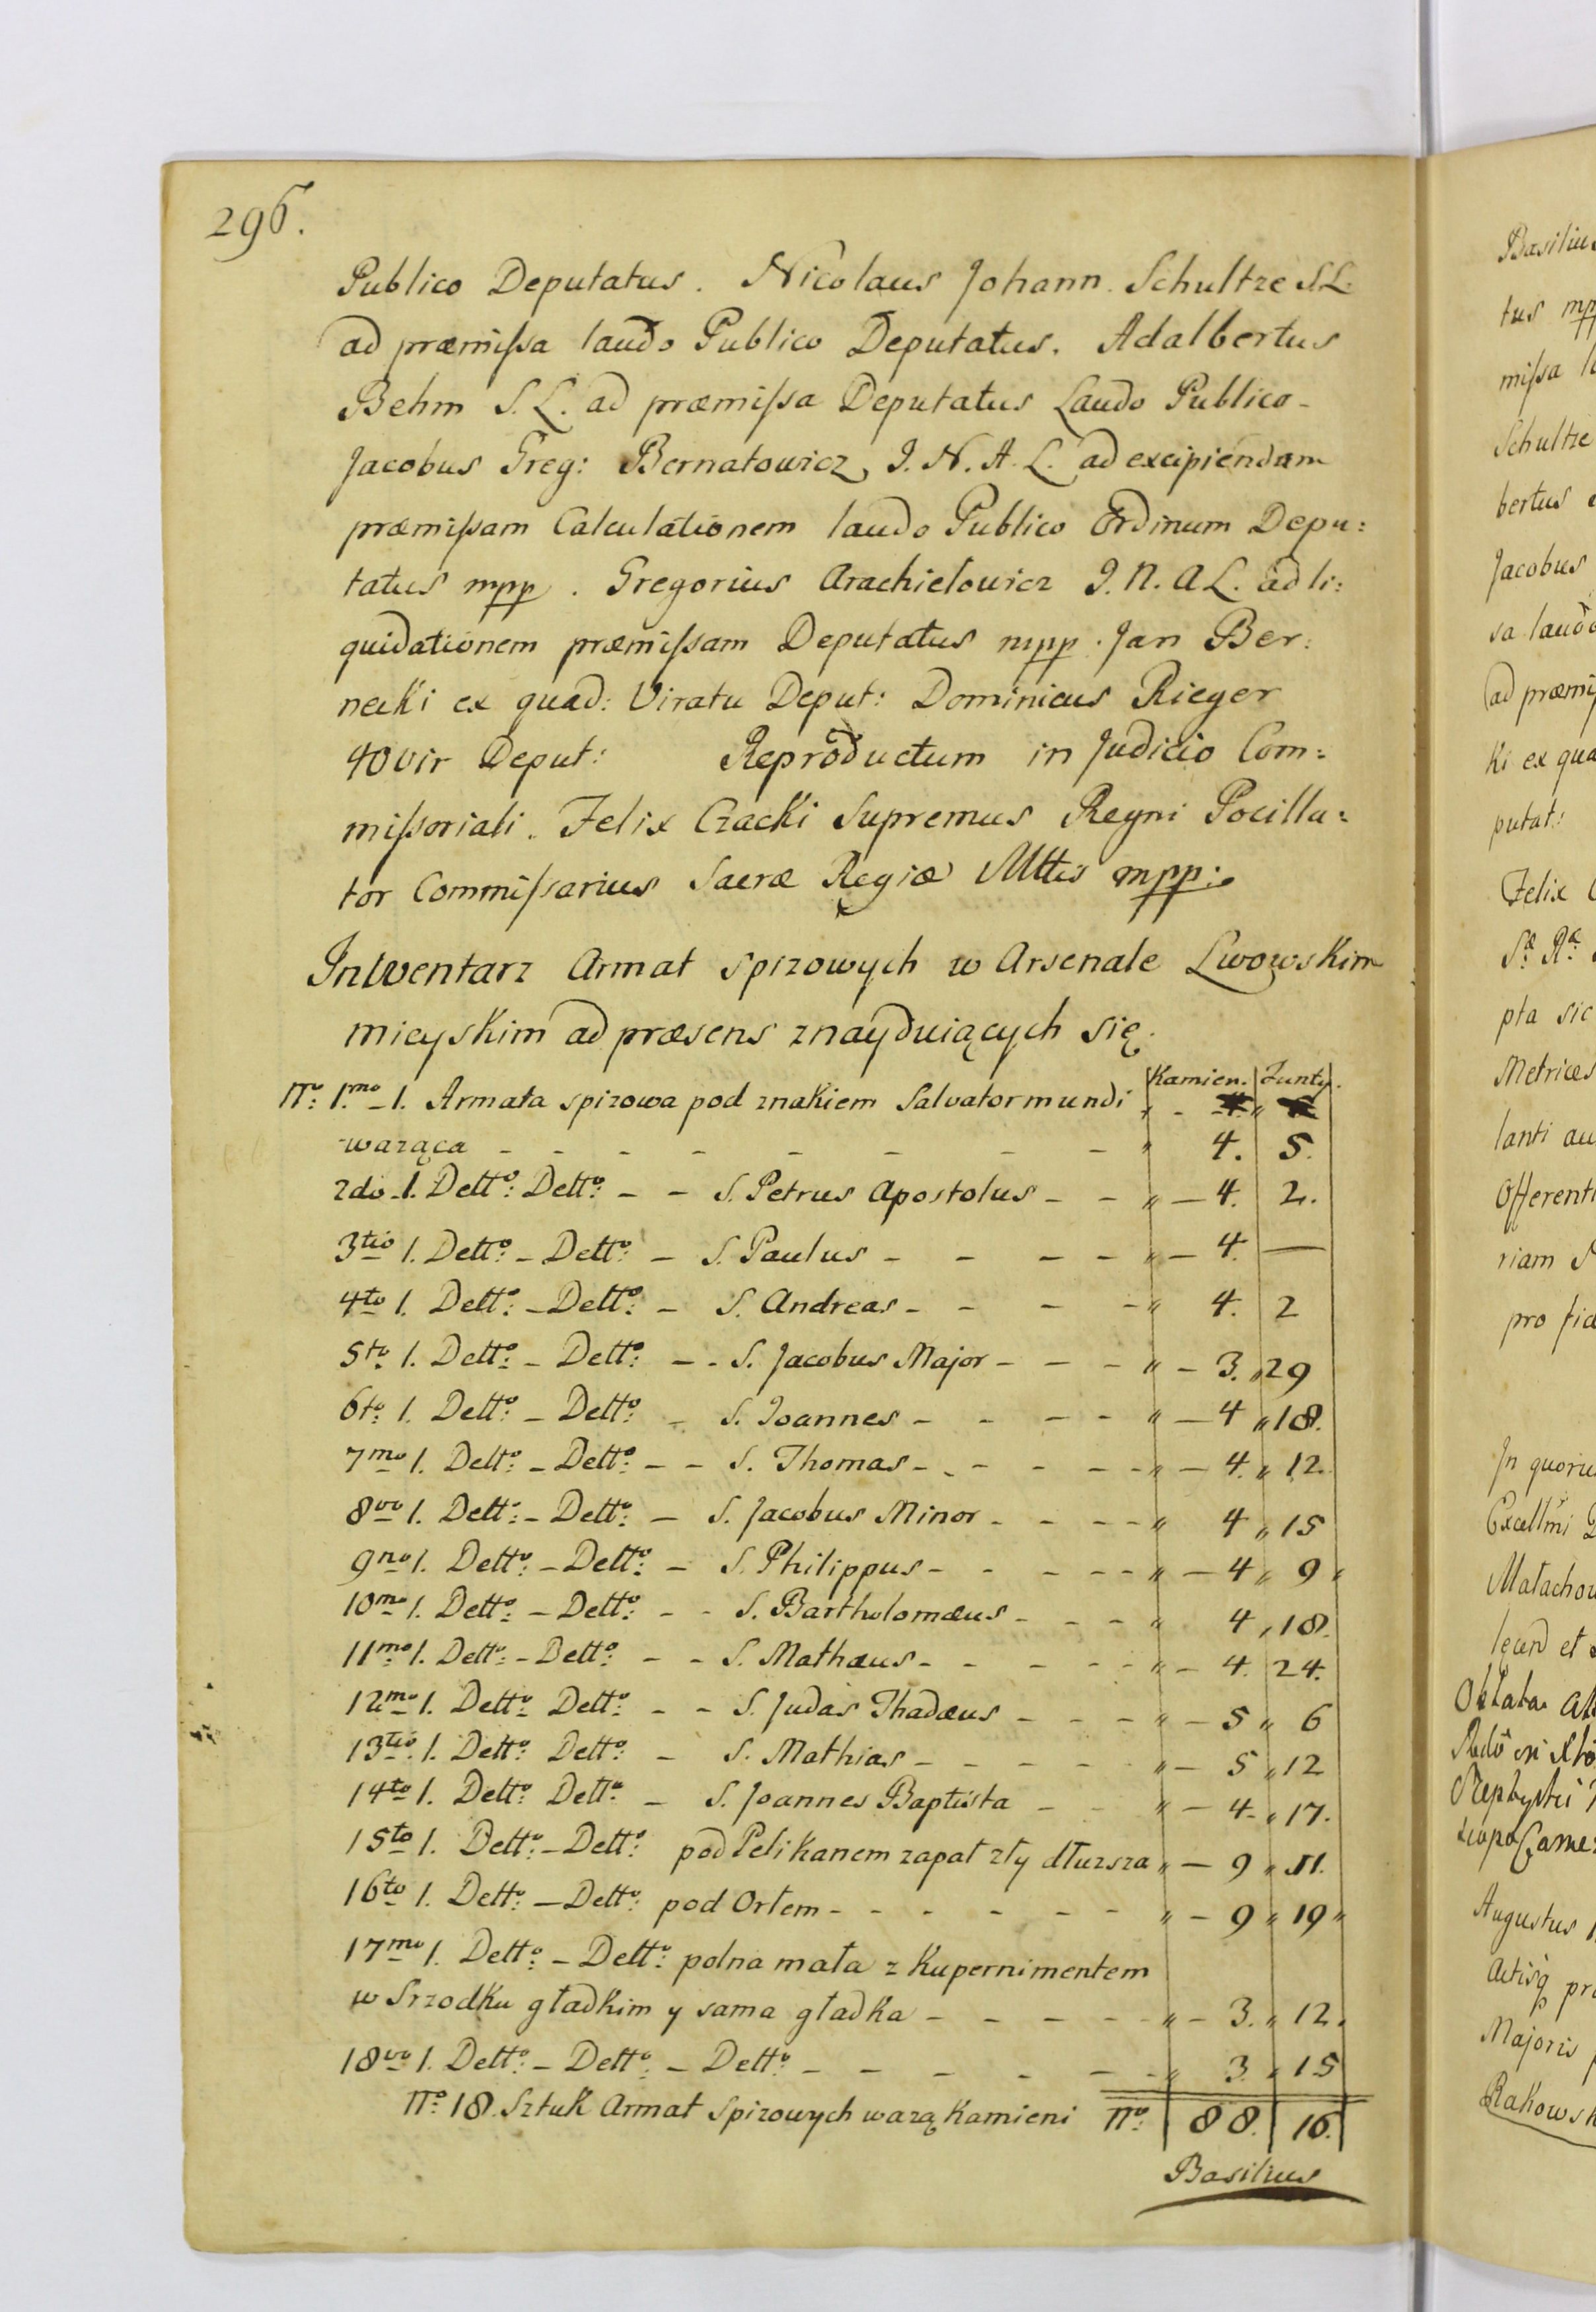 296.
Publico Deputatus. Nicolaus Johann. Schultze S.L.
ad præmissa laudo Publico Deputatus. Adalbertus
Behm S.L. ad præmissa Deputatus Laudo Publico-
Jacobus Greg: Bernatowicz, I.N.A.L. ad excipiendam
præmissam Calculationem laudo Publico Ordinum Depu:
tatus mpp. Gregorius Arachielowicz I.N.A L. ad li:
quidationem præmissam Deputatus mpp. Jan Ber:
necki ex quad: Viratu Deput: Dominicus Rieger
40vir Deput: Reproductum in Judicio Com:
missoriali. Felix Czacki Supremus Regni Pocilla:
tor Commissarius Sacræ Regiæ Mttis mpp:
Inwentarz Armat spizowych w Arsenale Lwowskim
mieyskim ad præsens znayduiących się.
Kamien. Funty.
No: 1.mo - 1. Armata spizowa pod znakiem Salvatormundi
ważąca - - - - - - - - " 4. 5.
2do. 1. Detto: Detto: - - S. Petrus Apostolus - - " - 4. 2.
3tio 1. Detto: - Detto: - S. Paulus - - - - " - 4. —
4to 1. Detto: - Detto: - S. Andreas - - - - " 4. 2
5to. 1. Detto: - Detto: - - S. Jacobus Major - - - " - 3. " 29
6to: 1. Detto: - Detto: - S. Joannes - - - - " - 4 " 18.
7mo 1. Detto: - Detto: - - S. Thomas - - - - - - " - 4. " 12.
8vo 1. Detto: - Detto: - S. Jacobus Minor - - - - " 4 " 15
9no 1. Detto: - Detto: - S. Philippus - - - - - " - 4 " 9 "
10mo 1. Detto: - Detto: - - S. Bartholomæus - - - " 4 , 18.
11mo 1. Detto: - Detto: - - S. Mathæus - - - - - " - 4. 24.
12mo 1. Detto: Detto: - - S. Judas Thadæus - - - " - 5 " 6
13tio: 1. Detto: Detto: - S. Mathias - - - - - " - 5 " 12
14to 1. Detto: Detto: - S. Joannes Baptista - - " - 4- " 17.
15to 1. Detto: - Detto: pod Pelikanem zapał zły dłuzsza " - 9 " 11.
16to 1. Detto: - Detto: pod Orłem - - - - - - " - 9 " 19 "
17mo 1. Detto: - Detto: polna mała z Kupernimentem
w Srzodku gładkim y sama gładka - - - - - " - 3. " 12.
18vo 1. Detto: - Detto: - Detto: - - - - - - " 3. " 15
No: 18. Sztuk Armat Spizowych ważą Kamieni No: 88. 16.
Basilius
Basilius
tus mpp
missa
Schultze
bertus
Jacobus
sa laudo
ad præmis
ki ex qua
putat:
Felix
Sæ: Ræ:
pta sic
Metrices
lanti au
Offerenti
riam
pro fid
In quoru
Excellmi
Małachow
legend et
Oblata
Augustus
Actisq
Majoris
Rakowsk